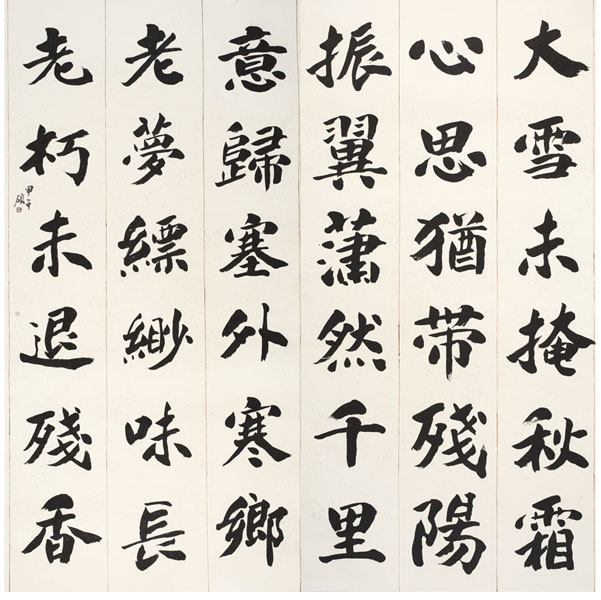 大雪未掩秋霜
心思猶带殘陽
振翼潇然千里
意歸塞外寒鄉
老夢縹緲味長
老朽未退殘香
甲午